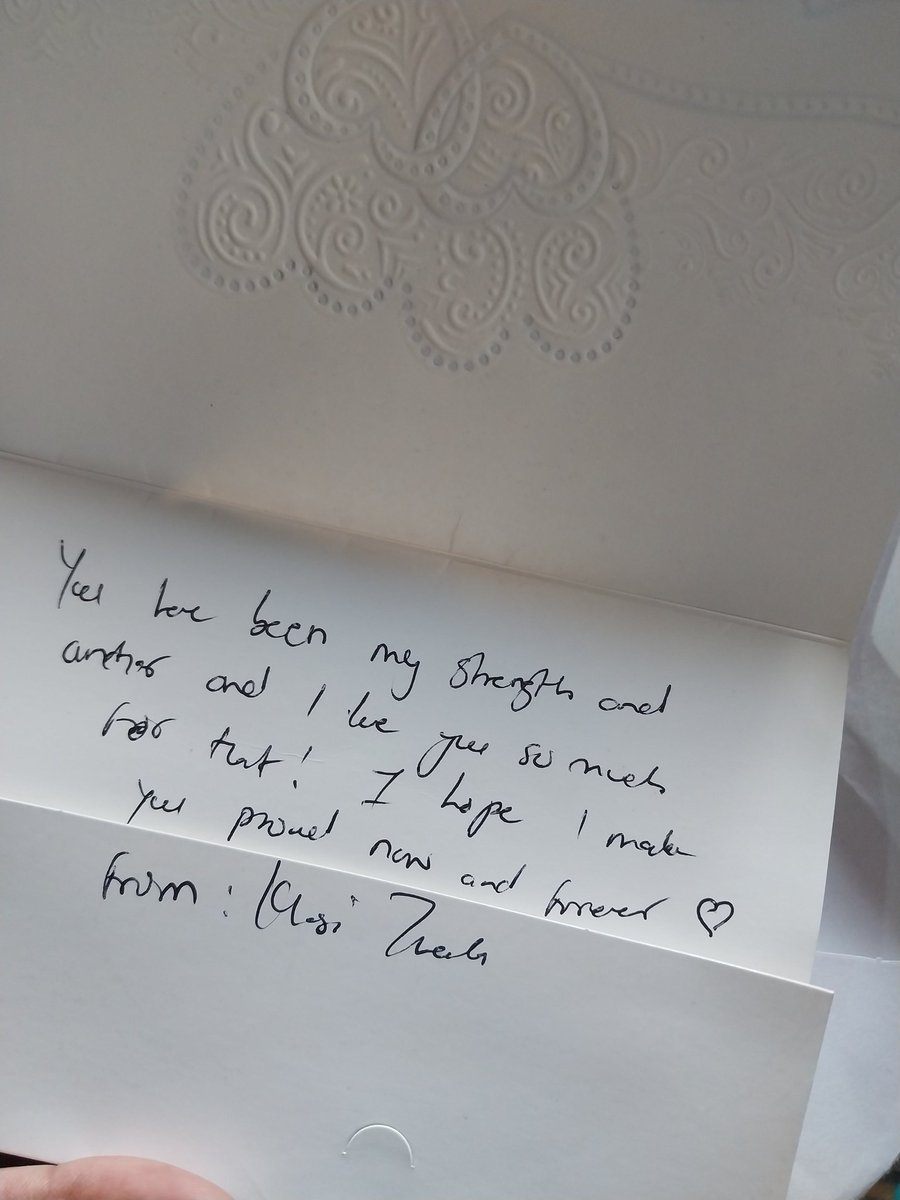 You have been my strength and
anchor and I love you so much
for that! I hope I make
you proud now and forever ♡
from: